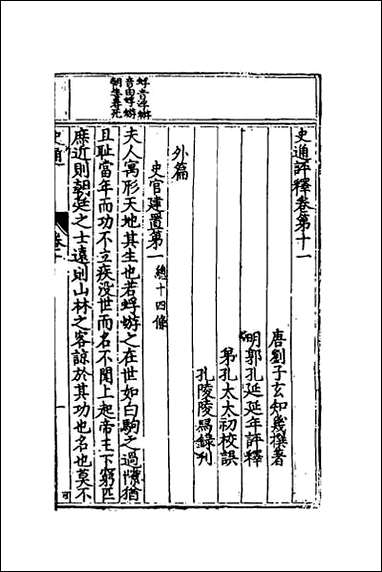 蜉音浮蝣
音由蜉蝣
朝生暮死
史通評釋卷第十一
唐劉子玄知幾撰著
明郭孔延延年評釋
弟孔太太初校誤
孔陵陵舄錄刋
外篇
史官建置第一 總十四條
夫人寓形天地其生也若蜉蝣之在世如白駒之過隙猶
且恥當年而功不立疾没世而名不聞上起帝王下窮匹
庶近則朝廷之士遠則山林之客諒於其功也名也莫不
史通